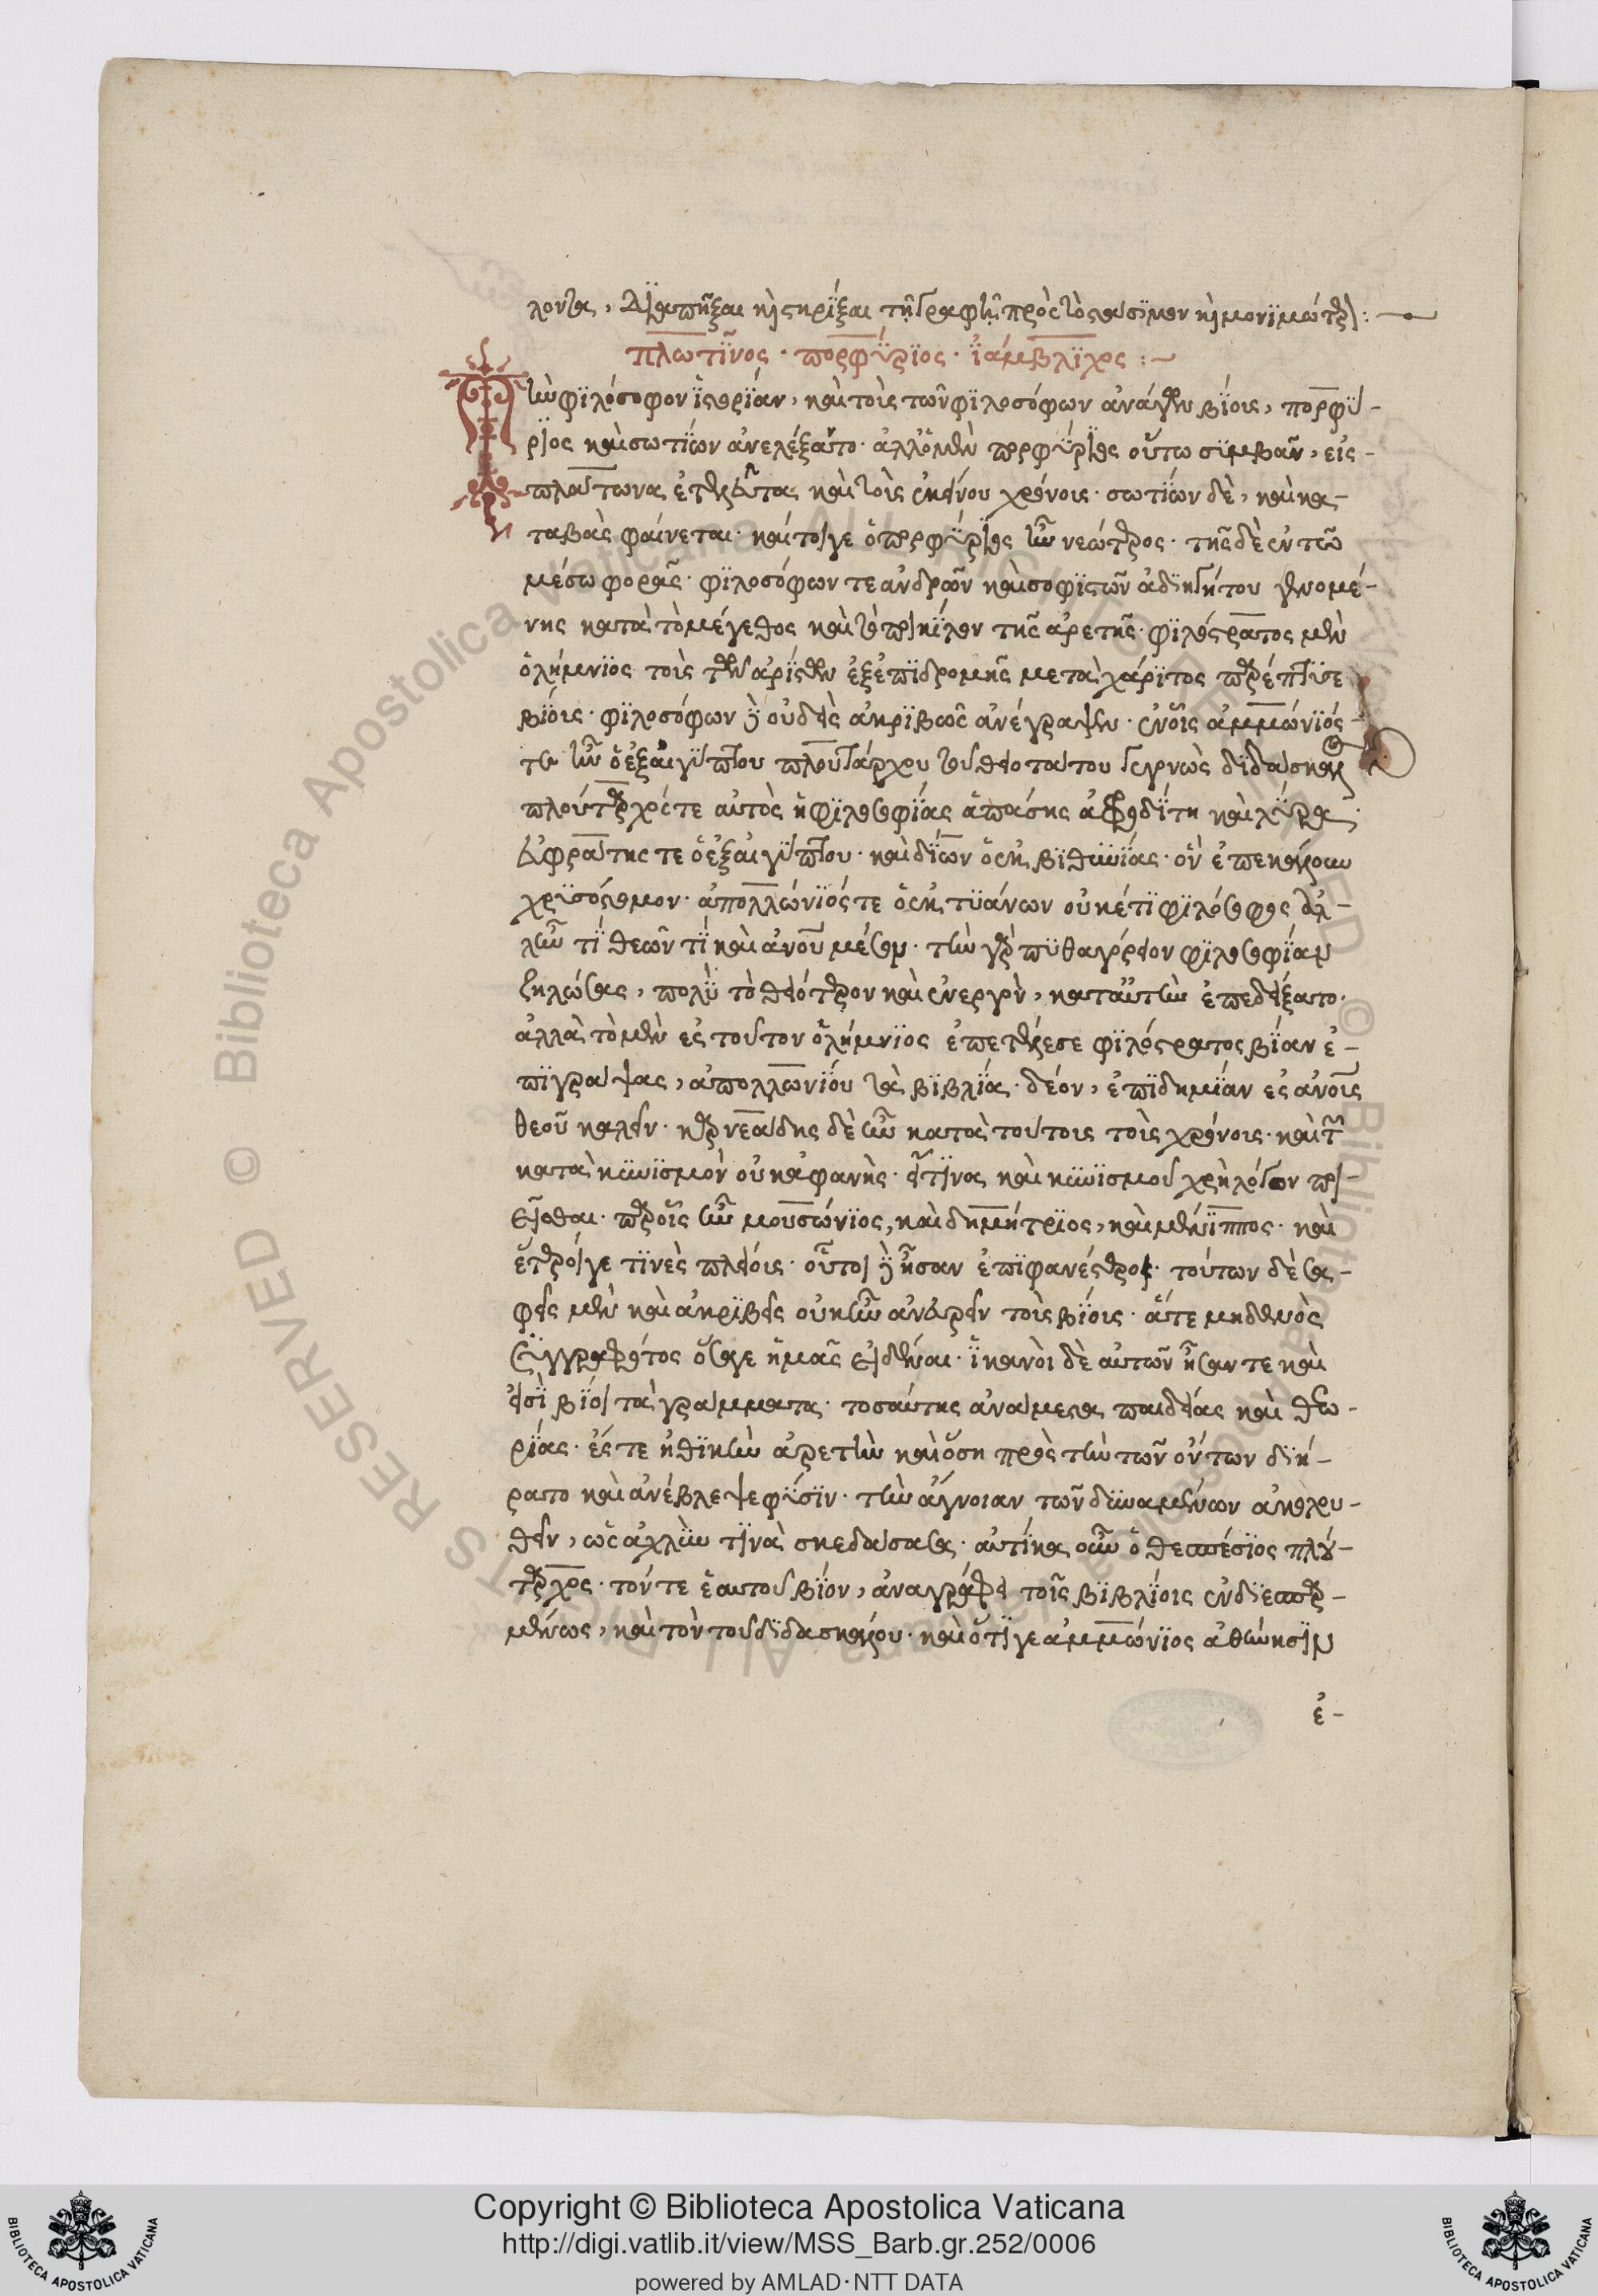 λοντα, διαπῆξαι καὶ στηρίξαι τῇ γραφῇ πρὸς τὸ στάσιμον καὶ μονιμώτερον:
πλωτῖνος · πορφύριος · ἰάμβλιχος :~
Τὴν φιλόσοφον ἱστορίαν, καὶ τοὺς τῶν φιλοσόφων ἀνδρῶν βίους, πορφύ-
ριος καὶ σωτίων ἀνελέξατο· ἀλλ' ὁ μὲν πορφύριος οὕτω συμβὰν, εἰς
πλάτωνα ἐτελεύτα καὶ τοὺς ἐκείνου χρόνους· σωτίων δὲ, καὶ κα-
ταβὰς φαίνεται· καίτοιγε ὁ πορφύριος ἦν νεώτερος· τῆς δὲ ἐν τῶ
μέσω φορᾶς· φιλοσόφων τε ἀνδρῶν καὶ σοφιστῶν ἀδιηγήτου γενομέ-
νης κατὰ τὸ μέγεθος καὶ τὸ ποικίλον τῆς ἀρετῆς· φιλόστρατος μὲν
ὁ λήμνιος τοὺς τῶν ἀρίστων ἐξ ἐπιδρομῆς μετὰ χάριτος παρέπτυσε
βίους· φιλοσόφων δὲ οὐδεὶς ἀκριβῶς ἀνέγραψεν· ἐν οἷς ἀμμώνιός
τε ἦν ὁ ἐξ αἰγύπτου πλουτάρχου τοῦ θειοτάτου γεγονὼς διδάσκαλος
πλούταρχός τε αὐτὸς ἡ φιλοσοφίας ἁπάσης ἀφροδίτη καὶ λύρα·
εὐφράτης τε ὁ ἐξ αἰγύπτου· καὶ δίων ὁ ἐκ βιθυνίας· ὃν ἐπεκάλουν
χρυσόστομον· ἀπολλώνιός τε ὁ ἐκ τυάνων οὐκέτι φιλόσοφος ἀλ-
λ' ἦν τι θεῶν τι καὶ ἀνου μέσον· τὴν γὰρ πυθαγόρειον φιλοσοφίαν
ζηλώσας, πολὺ τὸ θειότερον καὶ ἐνεργὸν, κατ' αὐτὴν ἐπεδείξατο·
ἀλλὰ τὸ μὲν ἐς τοῦτον ὁ λήμνιος ἐπετέλεσε φιλόστρατος βίον ἐ-
πιγράψας, ἀπολλωνίου τὰ βιβλία· δέον, ἐπιδημίαν ἐς ἀνους
θεοῦ καλεῖν· καρνεάδης δὲ ἦν κατὰ τούτους τοὺς χρόνους· καὶ τῶν
κατὰ κυνισμὸν οὐκ ἀφανὴς· εἴ τινα καὶ κυνισμοῦ χρὴ λόγον ποι-
εῖσθαι· παρ' οἷς ἦν μουσώνιος, καὶ δημήτριος, καὶ μένιππος· καὶ
ἕτεροίγε τινὲς πλείους· οὗτοι δὲ ἦσαν ἐπιφανέστεροι· τούτων δὲ σα-
φεῖς μὲν καὶ ἀκριβεῖς οὐκ ἦν ἀνευρεῖν τοὺς βίους· ἅτε μηδενὸς
συγγραφότος ὅσαγε ἡμᾶς εἰδέναι· ἱκανοὶ δὲ αὐτῶν ἦσαν τε καὶ
εἰσὶ βίοι τὰ γράμματα· τοσαύτης ἀνάμεστα παιδείας καὶ θεω-
ρίας· ἔς τε ἠθικὴν ἀρετὴν καὶ ὅση πρὸς τὴν τῶν ὄντων διή-
ρατο καὶ ἀνέβλεψε φύσιν· τὴν ἄγνοιαν τῶν δυναμένων ἀκολου-
θεῖν, ὡς ἀχλὺν τινὰ σκεδάσασα· αὐτίκα οὖν ὁ θεσπέσιος πλού-
ταρχος· τόν τε ἑαυτοῦ βίον, ἀναγράφει τοῖς βιβλίοις ἐνδιεσπαρ-
μένως, καὶ τὸν τοῦ διδασκάλου· καὶ ὅτιγε ἀμμώνιος ἀθήνησιν
ἐ-
Copyright © Biblioteca Apostolica Vaticana
http://digi.vatlib.it/view/MSS_Barb.gr.252/0006
powered by AMLAD·NTT DATA